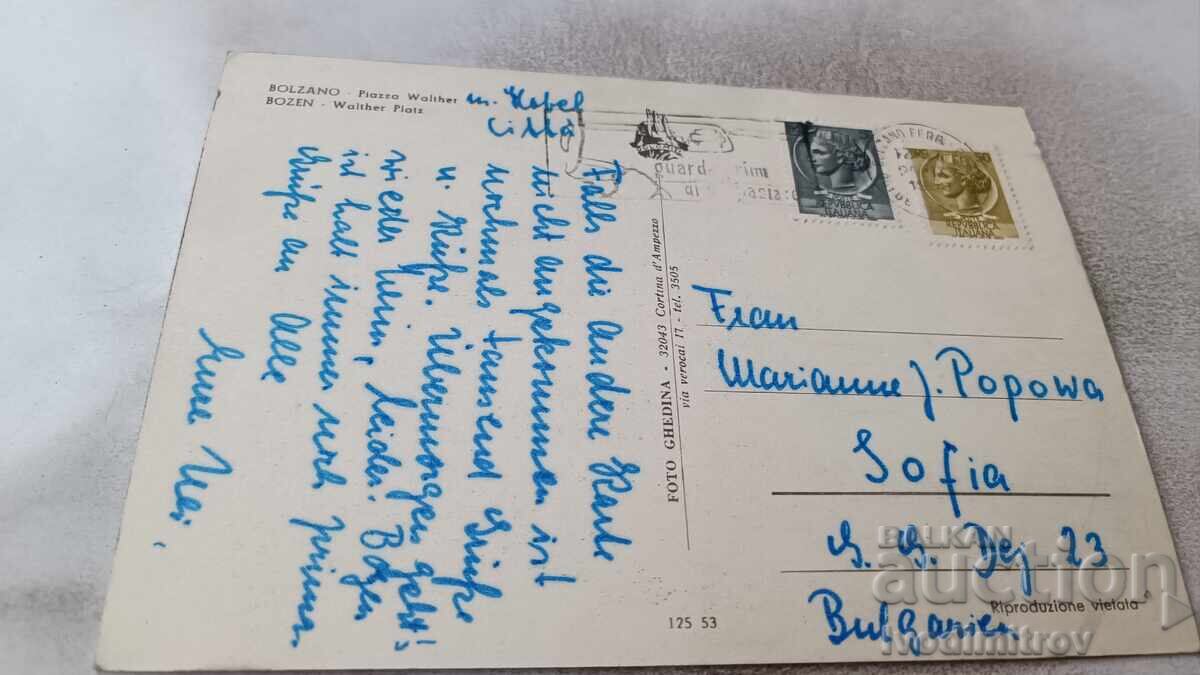 BOLZANO - Piazza Walther
BOZEN - Walther Platz
m. Hotel
Città
Falls die andere Karte
nicht angekommen ist
nochmals tausend Grüße
u. Küße. Übermorgen geht's
wieder heim, leider. Bozen
ist halt immer noch prima.
Grüße an Alle
guard
di
REPVBBLICA
ITALIANA
REPVBBLICA
ITALIANA
FOTO GHEDINA - 32043 Cortina d'Ampezzo
via verocai 17 - tel. 3505
Frau
Marianne J. Popowa
Sofia
G. G. Dej 23
Bulgarien
Riproduzione vietata
125 53
BALKAN
auction
ivodimitrov